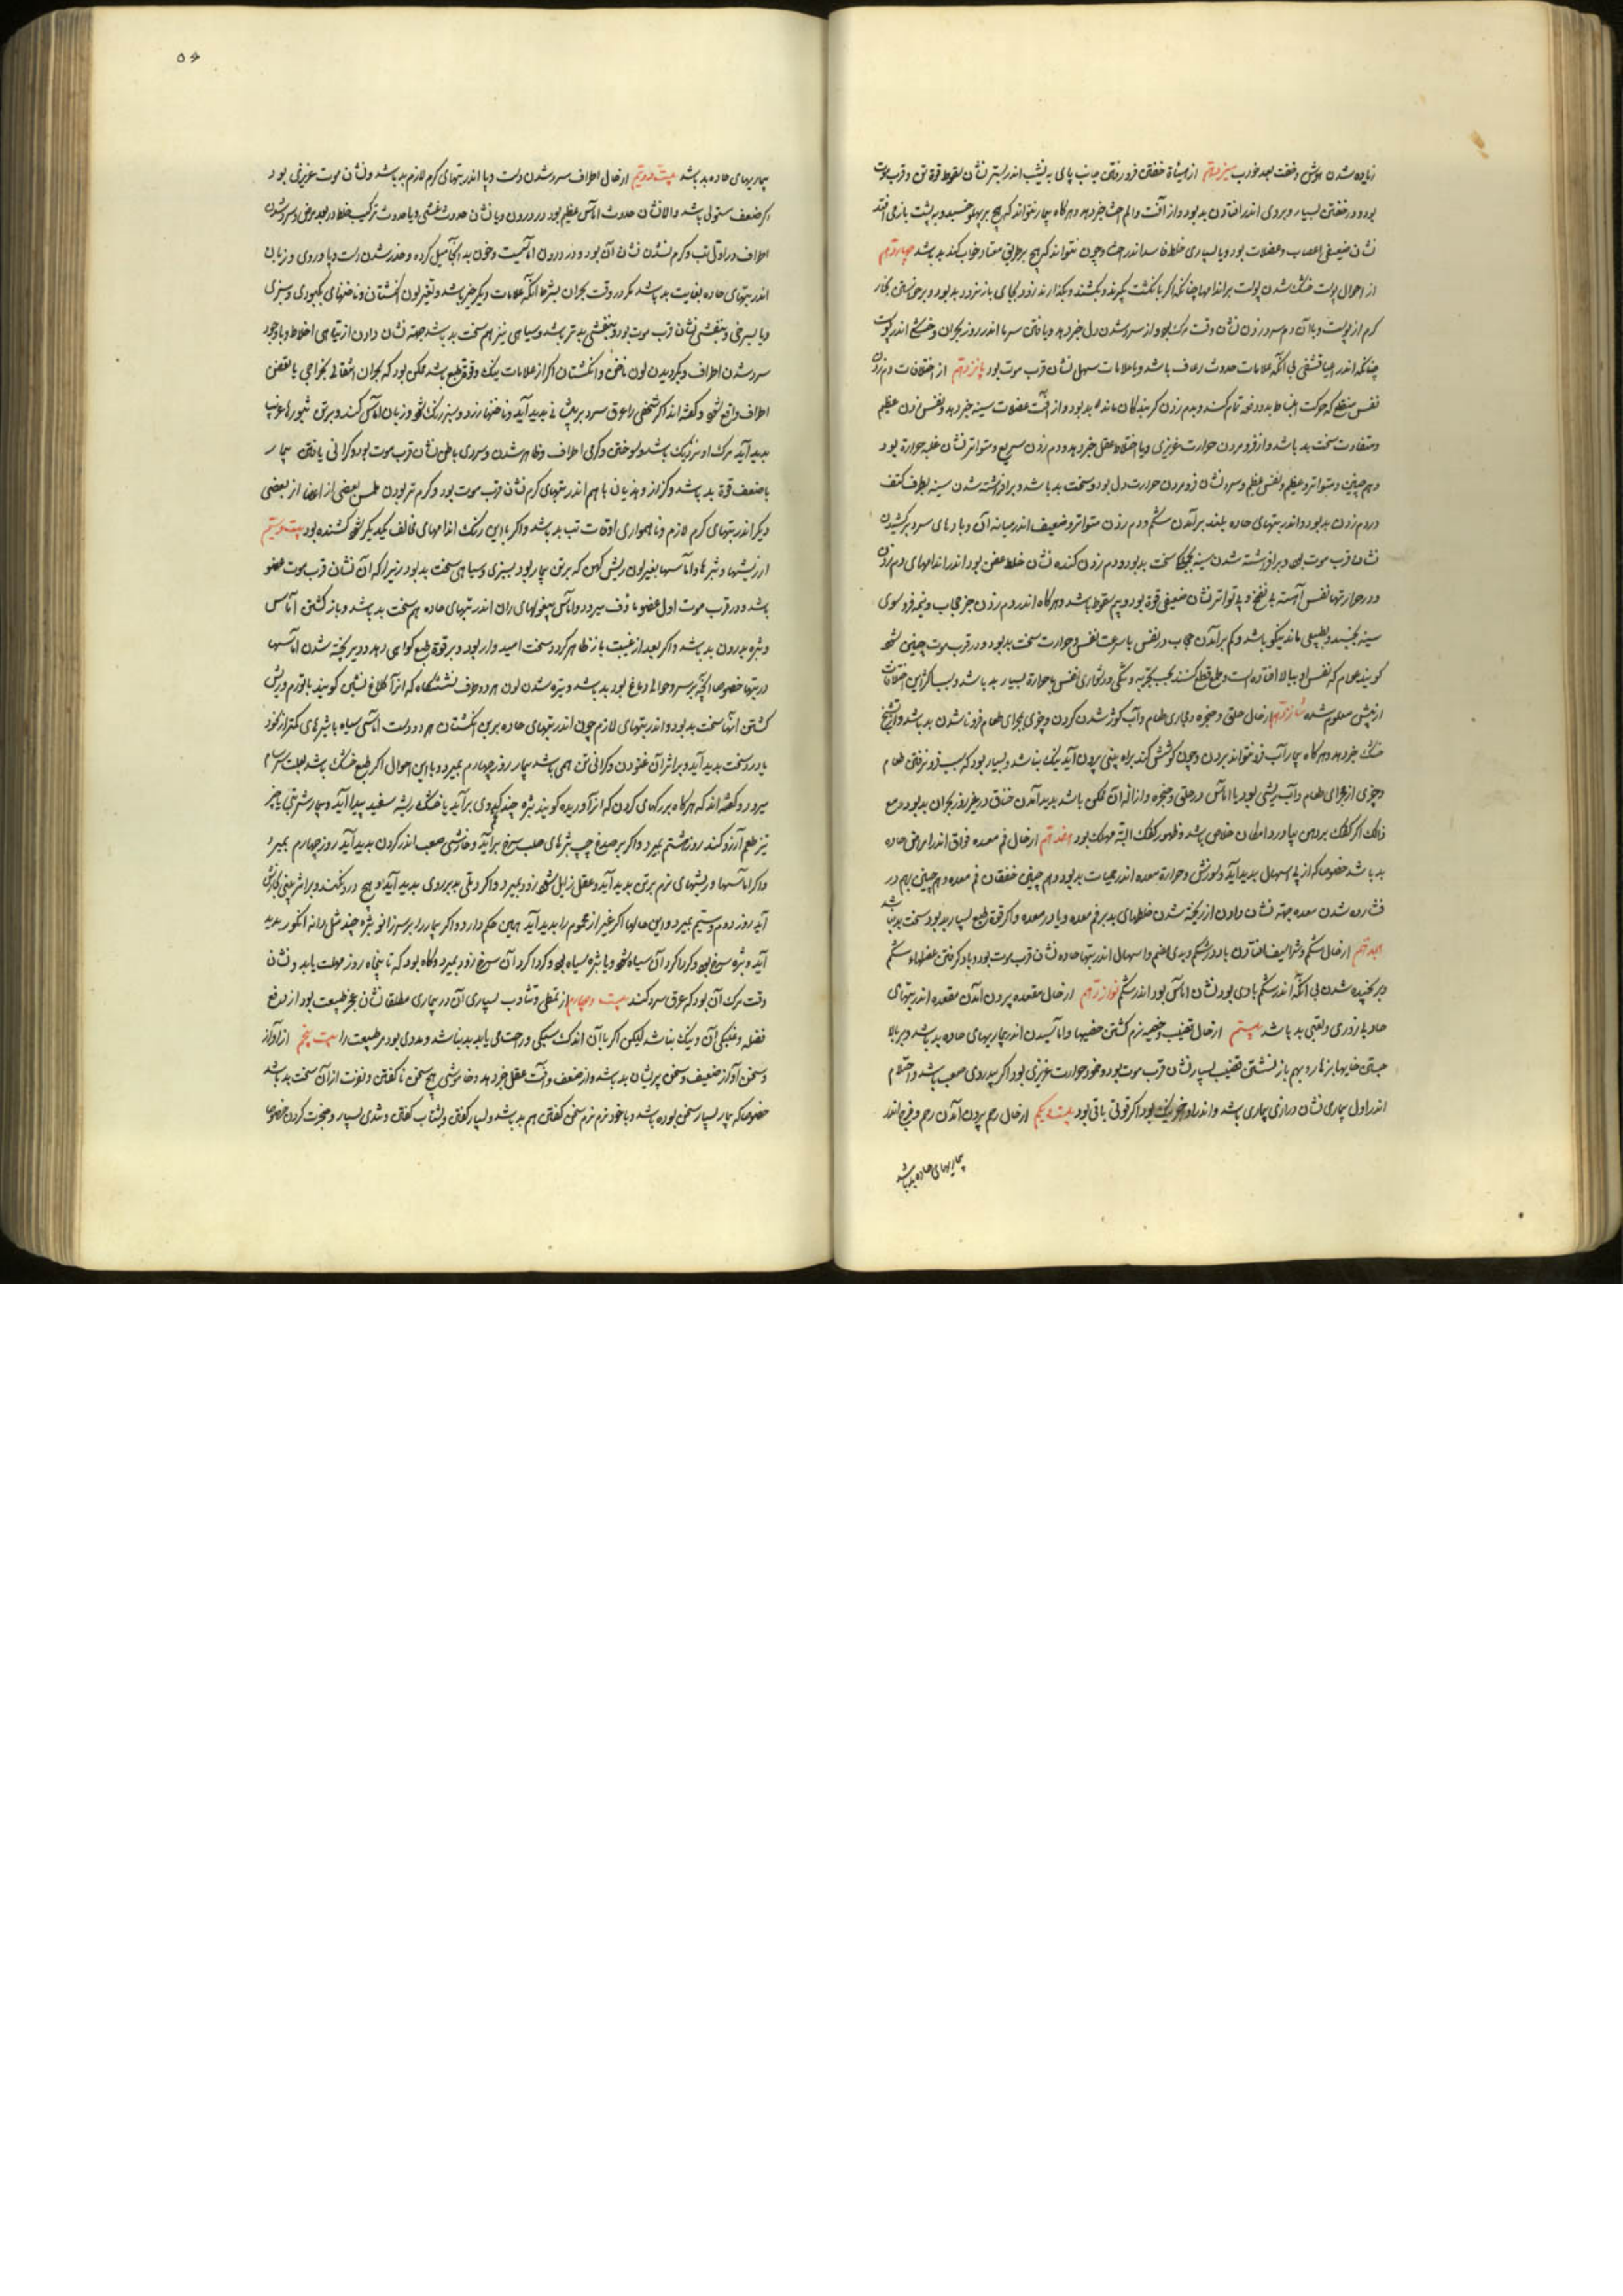 زیاده شدن اعراض وخفت بعد خواب سیزدهم از هیئاة خفتن فرو رفتن جانب پای به نشیب اندر بستر نشان سقوط قوة تن و قرب موت
بود و در خفتن بسیار و بروی اندر افتادن بد بود و از آفت والم احشا خبر دهد وهرکاه بیمار نتواند که هیچ بر پهلو خسبد و به پشت باز می افتد
نشان ضعیفی اعصاب وعضلات بود ویا بسیاری خلط فاسد اندر احشا وچون نتواند که هیچ بر طریق معتاد خواب کند بد باشد چهاردهم
از احوال پوست خشک شدن پوست بر اندامها چنانکه اکر بانکشت بکیرند وبکشند وبکذارند زود بجای باز نرود بد بود و برخواستن بخار
کرم از پوست وباآن دم سرد زدن نشان وقت مرک بود واز سرد شدن دل خبر دهد ویافتن سرما اندر روز بحران وخشکی اندر پوست
چنانکه اندر بی آنکه علامات حدوث رعاف باشد ویا علامات سهل نشان قرب موت بود پانزدهم از اختلافات دم زدن
نفس منقطع که حرکت انبساط بدو دفعه تمام کند وبدم زدن کریندکان مانند بد بود و از آفت عضلات سینه خبر دهد ونفس زدن عظیم
ومتفاوت سخت بد باشد واز فرو مردن حرارت غریزی ویا اختلاط عقل خبر دهد ودم زدن سریع ومتواتر نشان غلبه حرارة بود
وهم چنین ومتواتر وعظیم ونفس عظیم وسرد نشان فرو مردن حرارت دل بود وسخت بد باشد وبرافراشته شدن سینه بطرف کتف
در دم زدن بد بود واندر تبهای حاده بلند برآمدن شکم ودم زدن متواتر وضعیف اندر میانه آن وبادهای سرد برکشیدن
نشان قرب موت بود وبرافراشته شدن سینه سخت بد بود ودم زدن کنده نشان خلط عفن بود اندر اندامهای دم زدن
ودر حرارتها نفس آهسته بی نفخ وبی تواتر نشان ضعیفی قوة بود وبیم سقوط باشد وهرکاه اندر دم زدن جز حجاب ونیمه فرو سوی
سینه نجنبد وبطبیعی مانند نیکو باشد وکم برآمدن حجاب در نفس با سرعت نفس وحرارت سخت بد بود ودر قرب موت چنین شود
کویند عوام که نفس او ببالا افتاده است وطمع قطع کنند بحسب تجربه وتنکی ودشواری نفس با حرارة بسیار بد باشد وسبب اکثر این اختلافات
از پیش معلوم شده شانزدهم از حال حلق وحنجره ومجاری طعام وآب کوژ شدن کردن وچیزی بمجرای طعام فرو ناشدن بد باشد واز تشنج
خشک خبر دهد وهرکاه بیمار آب فرو نتواند بردن وچون کوشش کند براه بینی برون آید نیک نباشد وبسیار بود که سبب فرو نرفتن طعام
وچیزی از مجرای طعام وآب ریشی بود یا آماس در حلق وحنجره واز انواع آن ممکن باشد پدید آمدن خناق در غیر روز بحران بد بود ومع
ذالک اکر کفک بر دهن بیاورد امکان خلاص باشد وظهور کفک البته مهلک بود هفدهم از حال فم معده فواق اندر امراض حاده
بد باشد خصوصا که از پی اسهال پدید آید وسوزش وحرارة معده اندر حمیات بد بود وهم چنین خفقان فم معده وهم چنین بهم در
فشارده شدن معده جهة نشان دادن از ریخته شدن خلطهای بد بر فم معده ویا در معده واکر قوة طبع بسیار بد بود سخت بد باشد
هجدهم از حال شکم وشراسیف افتادن باد در شکم وبدی هضم واسهال اندر تبهای حاده نشان قرب موت بود وباد کرفتن عضلهاء شکم
وبر کشیده شدن بی آنکه اندر شکم بادی بود نشان آماس بود اندر شکم نوزدهم از حال مقعده برون آمدن مقعده اندر تبهای
حاد با زوری وتعبی بد باشد بیستم از حال قضیب وخصیه نرم کشتن خصیها وآماسیدن اندر بیماریهای حاده بد باشد وبر بالا
جستن خایها بزهار وبهم باز نشستن قضیب بسیار نشان قرب موت بود وخمود حرارت غریزی بود اکر پدر روی صعب باشد واحتلام
اندر اول بیماری نشان درازی بیماری باشد واندر اواخر نیک بود اکر قوتی باقی بود بیست ویکم از حال رحم برون آمدن رحم وفرج اندر
بیماریهای حاده بد باشد
٥٤
بیماریهای حاده بد باشد بیست ودویم از حال اطراف سرد شدن دست وپا اندر تبهای کرم لازم بد باشد ونشان موت غریزی بود
اکر ضعف مستولی باشد والا نشان حدوث آماس عظیم بود در درون ویا نشان حدوث غشی ویا حدوث ترکیب خلط در بعد مرض وسرد شدن
اطراف در اول تب وکرم نشدن نشان آن بود که در درون آماسیست وخون بد آنجا میل کرده وخدر شدن دست وپا وروی وزبان
اندر تبهای حاده بغایت بد باشد مکر در وقت بحران بشرط آنکه علامات دیکر خیر باشد وتغیر لون انکشتان وناخنهای بکبودی وسبزی
ویا بسرخی وبنفشی نشان قرب موت بود وبنفشی بدتر باشد وسیاهی نیز هم سخت بد باشد جهة نشان دادن از تباهی اخلاط وباوجود
سرد شدن اطراف وکردیدن لون ناخن وانکشتان اکر از علامات نیک وقوة طبع باشد ممکن بود که بحران انتقالی بخراجی یا بعفن
اطراف واقع شود وکفته اند اکر شخصی را عرق سرد بر پیشانی پدید آید وناخنها زرد وسبز رنک شود وزبان آماس کند وبر تن بثورها غریب
پدید آید مرک او نزدیک باشد وسوختن وکرمی اطراف وظاهر شدن وسردی باطن نشان قرب موت بود وکرانی یافتن بیمار
با ضعف قوة بد باشد وکزاز وهذیان باهم اندر تبهای کرم نشان قرب موت بود وکرم تر بودن لمس بعضی از اعضا از بعضی
دیکر اندر تبهای کرم لازم وناهمواری اوقات تب بد باشد واکر با این رنک اندامهای مخالف یکدیکر شود کشنده بود بیست وسیم
از ریشها وبثرها وآماسها تغیر لون ریش کهن که بر تن بیمار بود بسبزی وسیاهی سخت بد بود زیرا که آن نشان قرب موت عضو
باشد ودر قرب موت اول عضو ماؤف میرد وآماس بیغولهای ران اندر تبهای حاده هم سخت بد باشد وباز کشتن آماس
وبثره بدرون بد باشد واکر بعد از غیبت باز ظاهر کردد سخت امیدوار بود وبر قوة طبع کواهی دهد ودیر پخته شدن آماسها
در تبها خصوصا آنچه بر سر وحوالی دماغ بود بد باشد وتیره شدن لون هر دو طرف نشستکاه که از آن کلاغ نشین کویند با تورم وریش
کشتن آنها سخت بد بود واندر تبهای لازم چون اندر تبهای حاده بر بن انکشتان هر دو دست آماسی سیاه با بثرهای کمتر از نخود
با درد سخت پدید آید وبر اثر آن غنودن وکرانی تن همی باشد بیمار روز چهارم بمیرد وبا این احوال اکر طبع خشک باشد بعلت سرسام
میرد وکفته اند که هرکاه بر رکهای کردن که از آن وریده کویند بثره چند کبودی برآید یا خشک ریشه سفید پیدا آید وبیمار شربتی یا چیز
تیز طعم آرزو کند روز هشتم بمیرد واکر بر صدغ چپ بثرهای صلب سرخ برآید وخارشی صعب اندر کردن پدید آید روز چهارم بمیرد
واکر آماسها وریشهای نرم بر تن پدید آید وعقل زایل شود زود بمیرد واکر دملی بد بر روی پدید آید وهیچ درد نکند وبر اثر بینی بخارش
آید روز دوم وسیم بمیرد واین حالها اکر غیر از محموم را پدید آید همین حکم دارد واکر بیمار را بر سر زانو بثره چند مثل دانه انکور پدید
آید وبثره سرخ بود وکرداکرد آن سیاه شود ویا بثره سیاه بود وکرداکرد آن سرخ زود بمیرد وکاه بود که تا پنجاه روز مهلت یابد ونشان
وقت مرک آن بود که عرق سرد کند بیست وچهارم از تمطی وتثاوب بسیاری آن در بیماری مطلقا نشان عجز طبیعت بود از دفع
فضله وغلیکی آن ونیک نباشد لیکن اکر با آن اندک سبکی وراحت می یابد بد نباشد ومددی بود مر طبیعت را بیست پنجم از آواز
وسخن آواز ضعیف وسخن پریشان بد باشد واز ضعف وآفت عقل خبر دهد وخاموشی هیچ سخن ناکفتن ونفرت از آن سخت بد باشد
خصوصا که بیمار بسیار سخن بوده باشد وبا خود نرم نرم سخن کفتن هم بد باشد وبسیار کفتن وبشتاب کفتن وتندی بسیار وضجرت کردن خصوصا